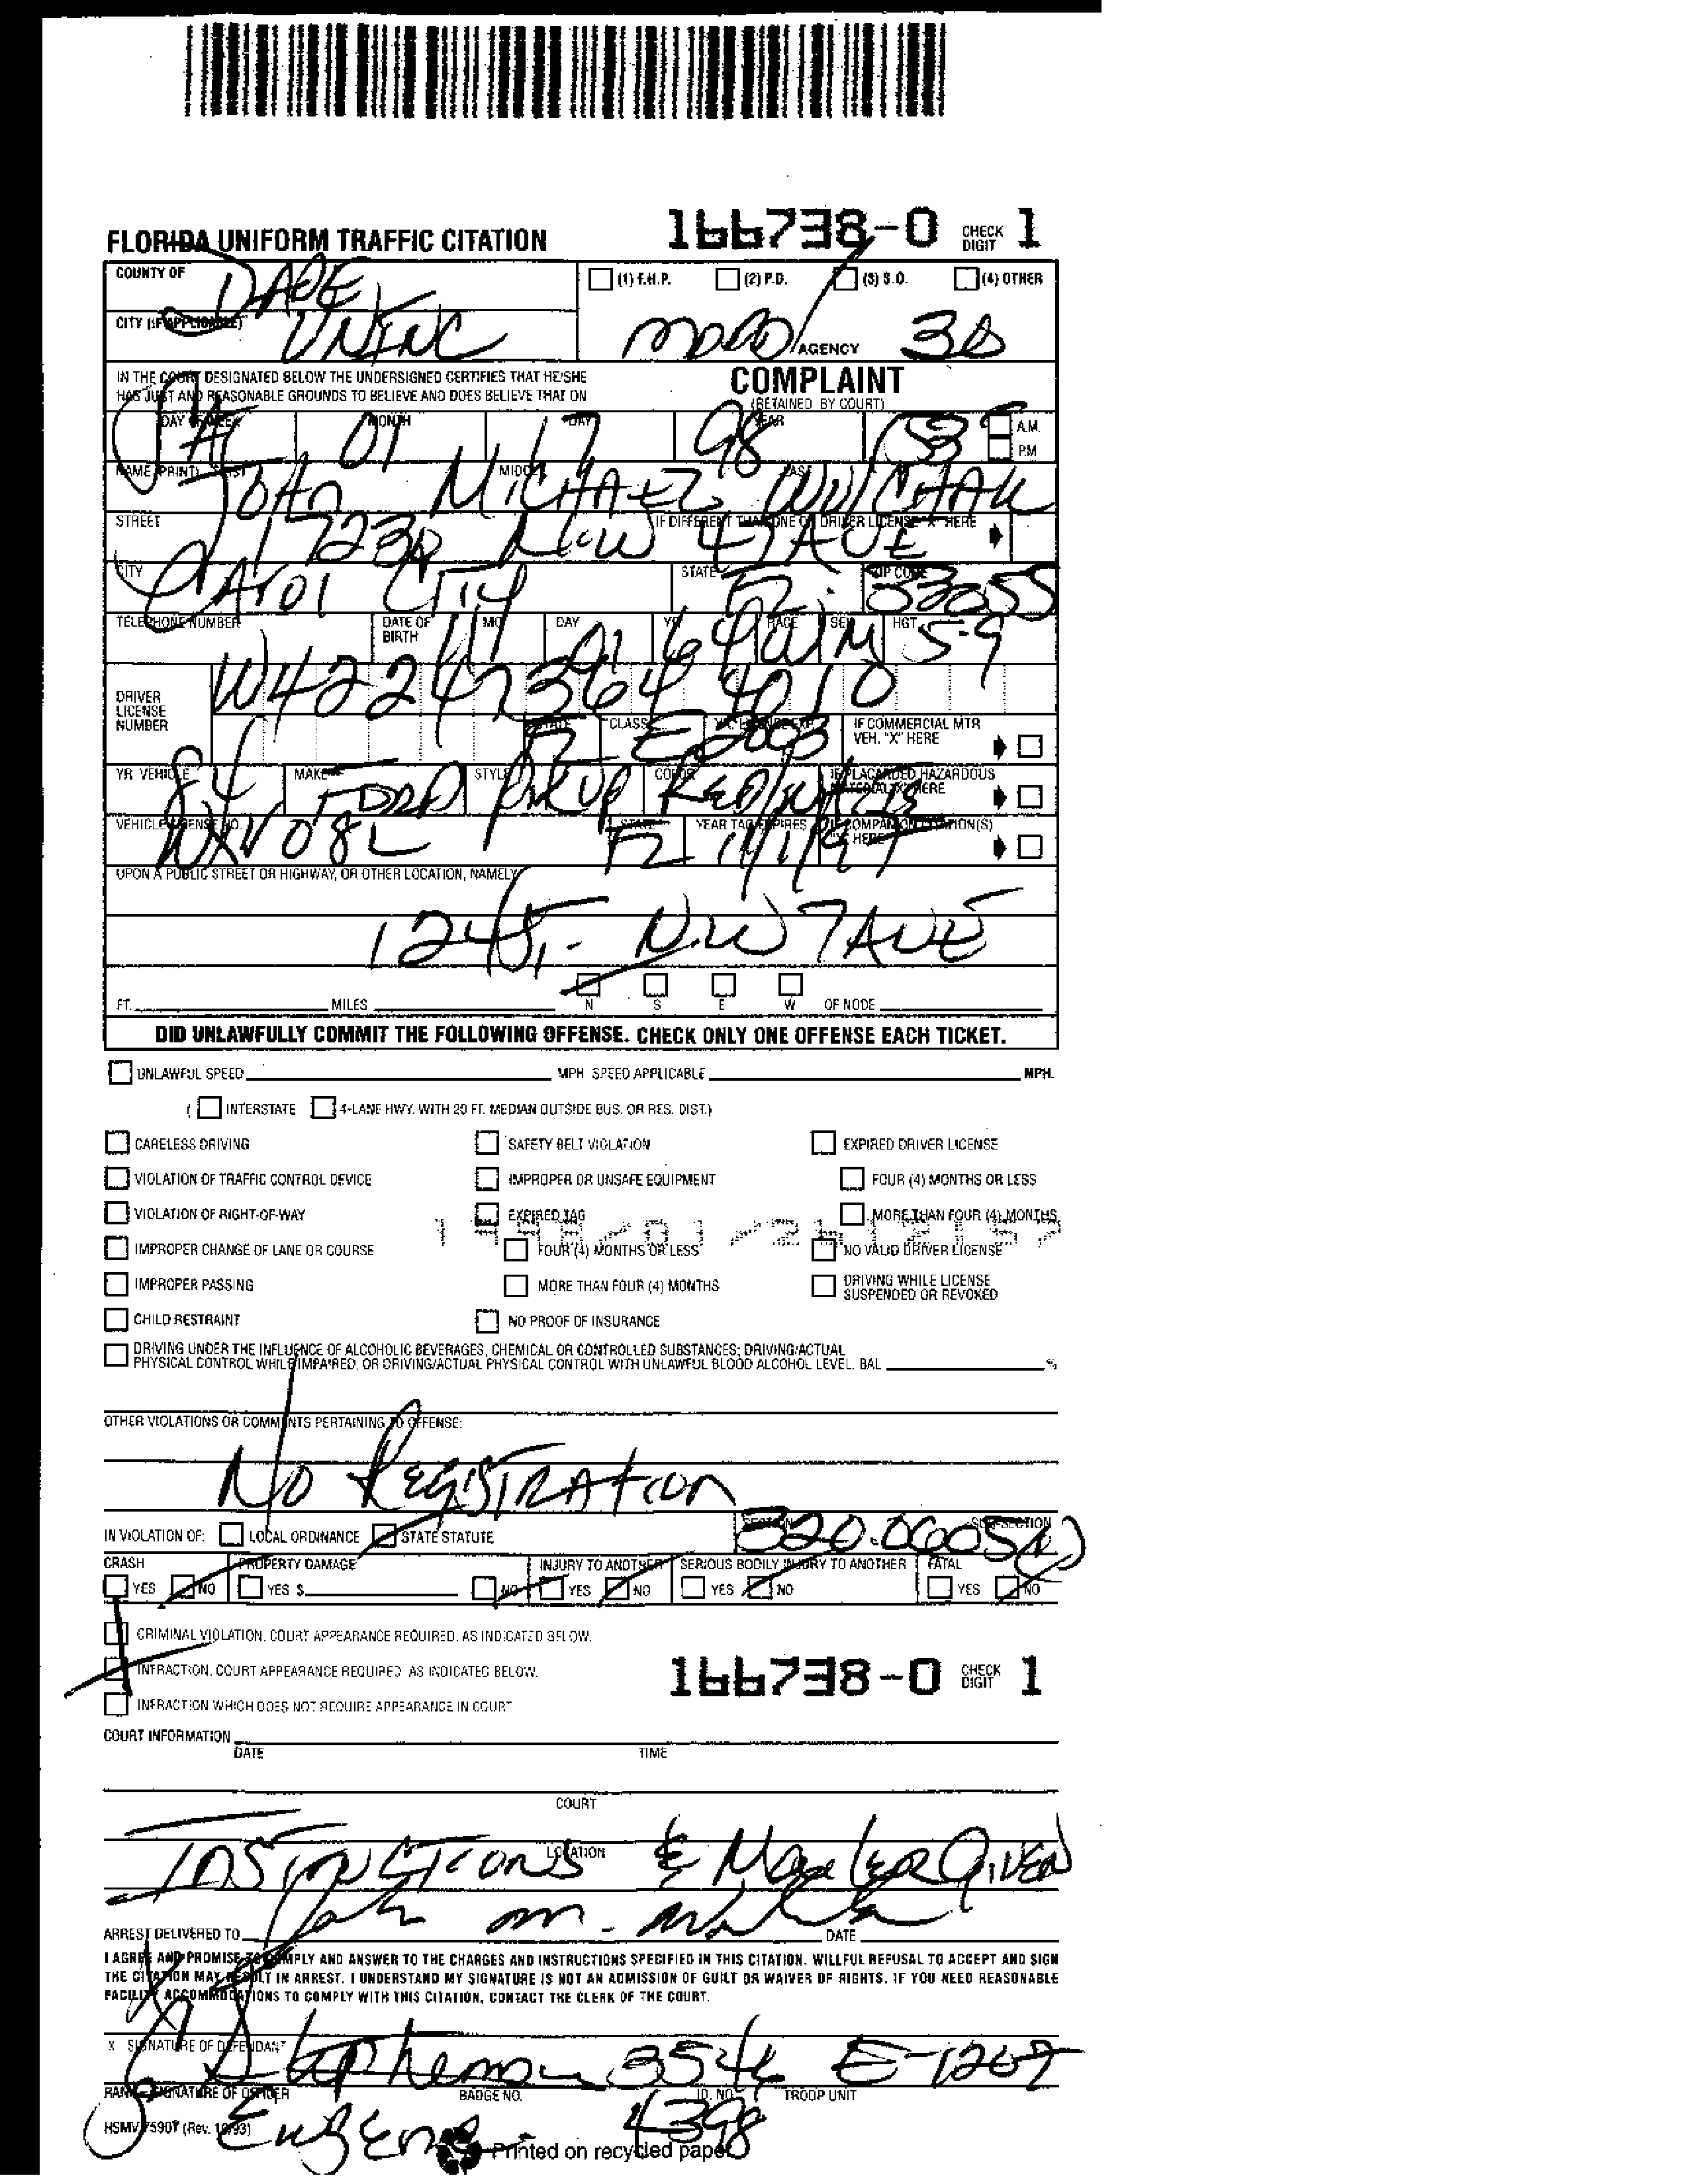 166738-0 CHECK DIGIT 1
FLORIDA UNIFORM TRAFFIC CITATION
COUNTY OF DADE
(1) F.H.P. (2) P.D. (3) S.O. (4) OTHER
CITY (IF APPLICABLE) UNINC
AGENCY 30
IN THE COURT DESIGNATED BELOW THE UNDERSIGNED CERTIFIES THAT HE/SHE
HAS JUST AND REASONABLE GROUNDS TO BELIEVE AND DOES BELIEVE THAT ON
COMPLAINT
(RETAINED BY COURT)
DAY OF WEEK MONTH 01 DAY 17 YEAR 98 A.M.
P.M.
NAME (PRINT) FIRST John MIDDLE MICHAEL LAST
STREET N.W 47 AVE IF DIFFERENT THAN ONE ON DRIVER LICENSE "X" HERE
CITY CArol City STATE FL ZIP CODE 33055
TELEPHONE NUMBER DATE OF BIRTH MO DAY YR 64 RACE W SEX M HGT 5-9
DRIVER LICENSE NUMBER W422473644010
STATE FL CLASS E YR. LICENSE EXP. 2003 IF COMMERCIAL MTR VEH. "X" HERE
YR VEHICLE 84 MAKE FORD STYLE PICKUP COLOR RED/WHITE IF PLACARDED HAZARDOUS MATERIAL "X" HERE
VEHICLE LICENSE NO. WXV08L STATE FL YEAR TAG EXPIRES 11/1/97 IF COMPANION CITATION(S) "X" HERE
UPON A PUBLIC STREET OR HIGHWAY, OR OTHER LOCATION, NAMELY
N.W 7 AVE
FT. MILES N S E W OF NODE
DID UNLAWFULLY COMMIT THE FOLLOWING OFFENSE. CHECK ONLY ONE OFFENSE EACH TICKET.
UNLAWFUL SPEED MPH SPEED APPLICABLE MPH.
( INTERSTATE 4-LANE HWY. WITH 20 FT. MEDIAN OUTSIDE BUS. OR RES. DIST.)
CARELESS DRIVING SAFETY BELT VIOLATION EXPIRED DRIVER LICENSE
VIOLATION OF TRAFFIC CONTROL DEVICE IMPROPER OR UNSAFE EQUIPMENT FOUR (4) MONTHS OR LESS
VIOLATION OF RIGHT-OF-WAY EXPIRED TAG MORE THAN FOUR (4) MONTHS
IMPROPER CHANGE OF LANE OR COURSE FOUR (4) MONTHS OR LESS NO VALID DRIVER LICENSE
IMPROPER PASSING MORE THAN FOUR (4) MONTHS DRIVING WHILE LICENSE SUSPENDED OR REVOKED
CHILD RESTRAINT NO PROOF OF INSURANCE
DRIVING UNDER THE INFLUENCE OF ALCOHOLIC BEVERAGES, CHEMICAL OR CONTROLLED SUBSTANCES; DRIVING/ACTUAL
PHYSICAL CONTROL WHILE IMPAIRED, OR DRIVING/ACTUAL PHYSICAL CONTROL WITH UNLAWFUL BLOOD ALCOHOL LEVEL. BAL %
OTHER VIOLATIONS OR COMMENTS PERTAINING TO OFFENSE:
No REGISTRATION
IN VIOLATION OF: LOCAL ORDINANCE STATE STATUTE SECTION 320.0605 SUB-SECTION
CRASH PROPERTY DAMAGE INJURY TO ANOTHER SERIOUS BODILY INJURY TO ANOTHER FATAL
YES NO YES $ NO YES NO YES NO YES NO
CRIMINAL VIOLATION. COURT APPEARANCE REQUIRED. AS INDICATED BELOW.
INFRACTION. COURT APPEARANCE REQUIRED AS INDICATED BELOW.
INFRACTION WHICH DOES NOT REQUIRE APPEARANCE IN COURT
166738-0 CHECK DIGIT 1
COURT INFORMATION
DATE TIME
COURT
LOCATION
INSTRUCTIONS & GIVEN
ARREST DELIVERED TO DATE
I AGREE AND PROMISE TO COMPLY AND ANSWER TO THE CHARGES AND INSTRUCTIONS SPECIFIED IN THIS CITATION. WILLFUL REFUSAL TO ACCEPT AND SIGN
THE CITATION MAY RESULT IN ARREST. I UNDERSTAND MY SIGNATURE IS NOT AN ADMISSION OF GUILT OR WAIVER OF RIGHTS. IF YOU NEED REASONABLE
FACILITY ACCOMMODATIONS TO COMPLY WITH THIS CITATION, CONTACT THE CLERK OF THE COURT.
X SIGNATURE OF DEFENDANT
Stephenson 354 E-1207
RANK-SIGNATURE OF OFFICER BADGE NO. ID. NO. TROOP UNIT
HSMV 75901 (Rev. 10/93) Eugene 4398
Printed on recycled paper